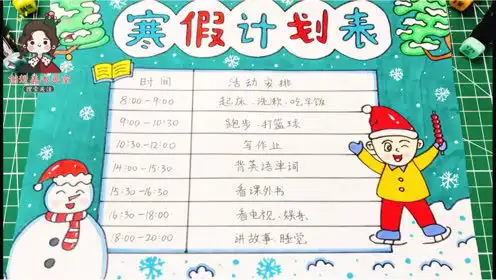 寒假计划表
时间 活动安排
8:00-9:00 起床、洗漱、吃早饭
9:00-10:30 跑步、打篮球
10:30-12:00 写作业
14:00-15:30 背英语单词
15:30-16:30 看课外书
16:30-18:00 看电视、娱乐
8:00-20:00 讲故事、睡觉
搜索关注